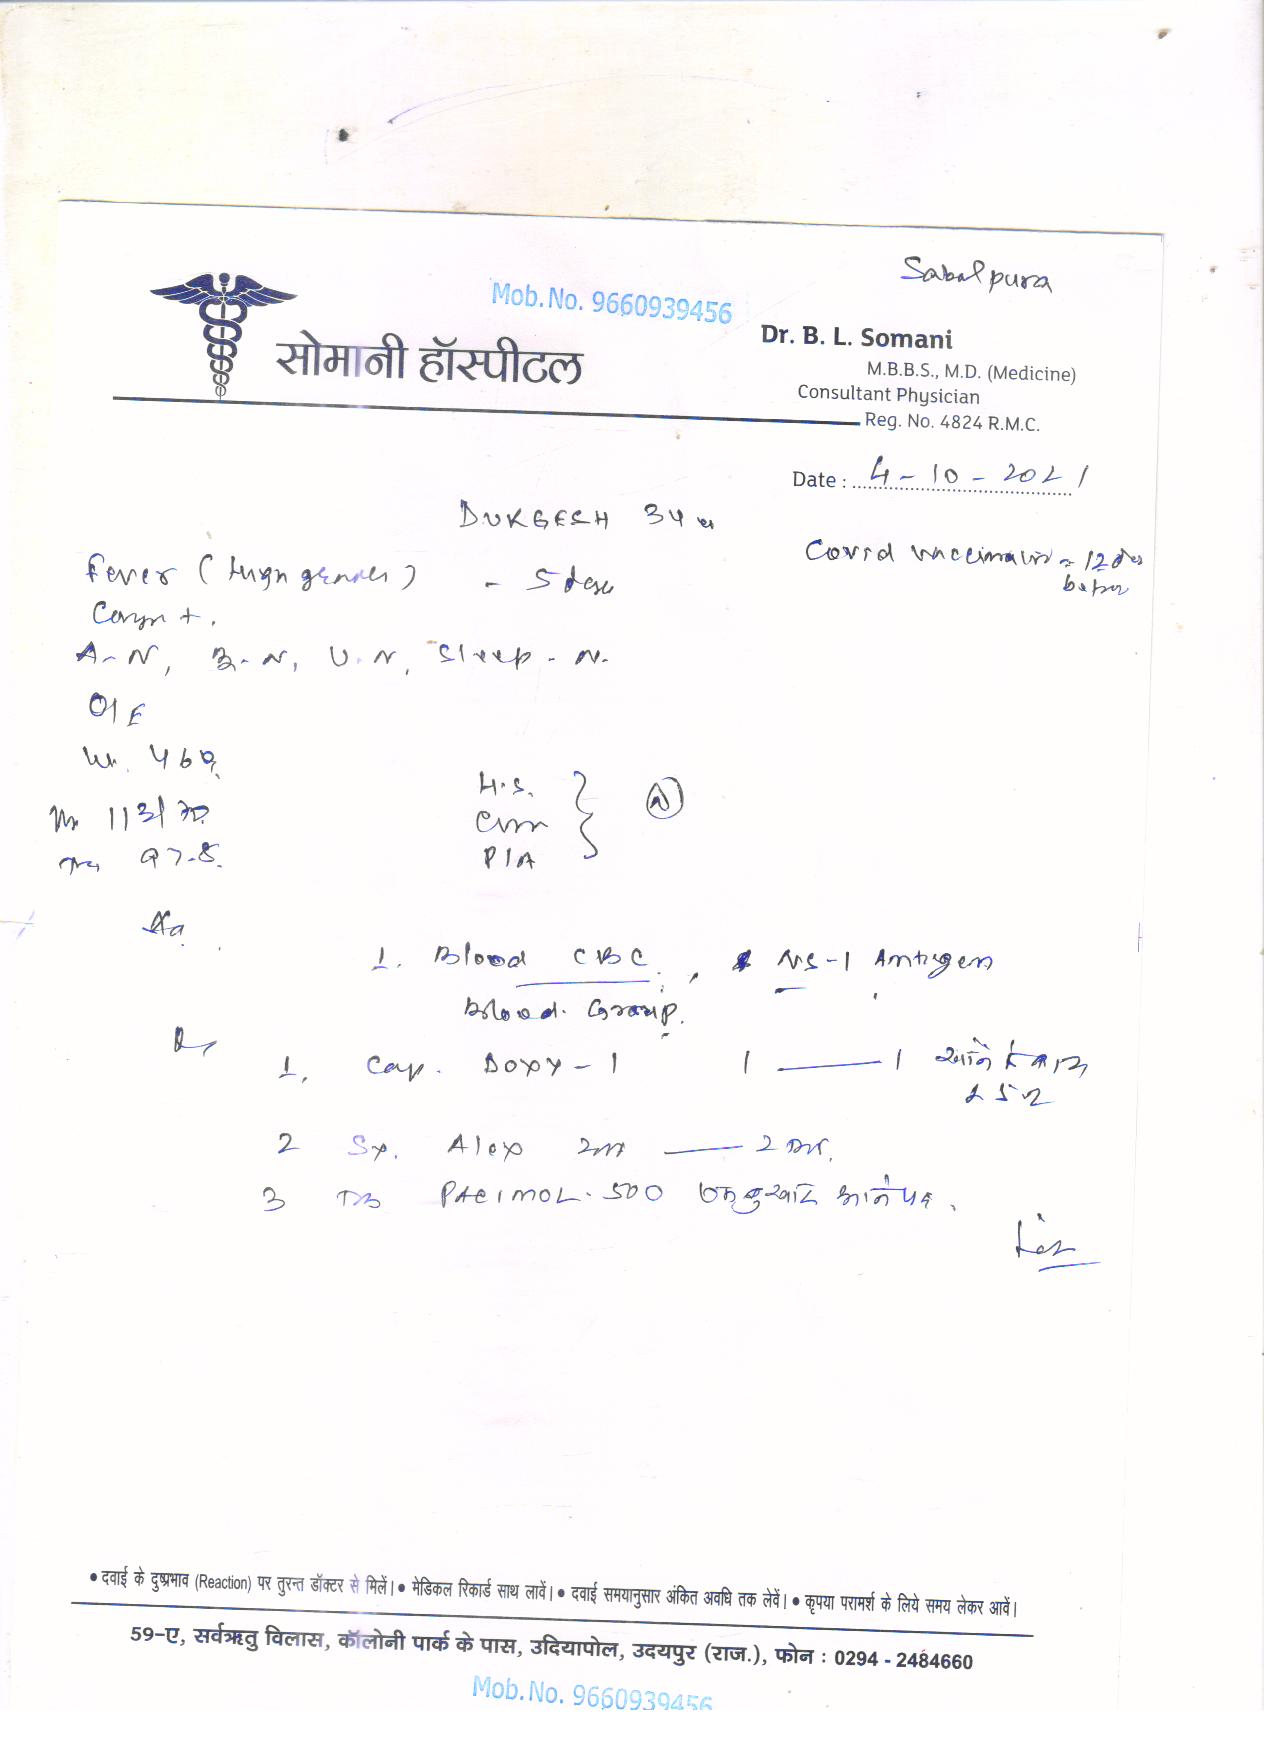 Sabalpura
Mob. No. 9660939456
सोमानी हॉस्पीटल
Dr. B. L. Somani
M.B.B.S., M.D. (Medicine)
Consultant Physician
Reg. No. 4824 R.M.C.
Date : 4-10-2021
DURGESH 34
Covid vaccination = 12 days
before
Fever (High grade) - 5 days
A-N, B-N, U.N, Sleep-N.
O/E
Wt. 46
113/70
97.8.
H.S.
P/A
1. Blood CBC, NS-1 Antigen
Blood Group.
1. Cap. Doxy-1 1 — 1
2 Sy. Alex 2 — 2
3 PACIMOL-500 बुखार आने पर.
• दवाई के दुष्प्रभाव (Reaction) पर तुरन्त डॉक्टर से मिलें। • मेडिकल रिकार्ड साथ लावें। • दवाई समयानुसार अंकित अवधि तक लेवें। • कृपया परामर्श के लिये समय लेकर आवें।
59-ए, सर्वऋतु विलास, कॉलोनी पार्क के पास, उदियापोल, उदयपुर (राज.), फोन : 0294 - 2484660
Mob. No. 9660939456